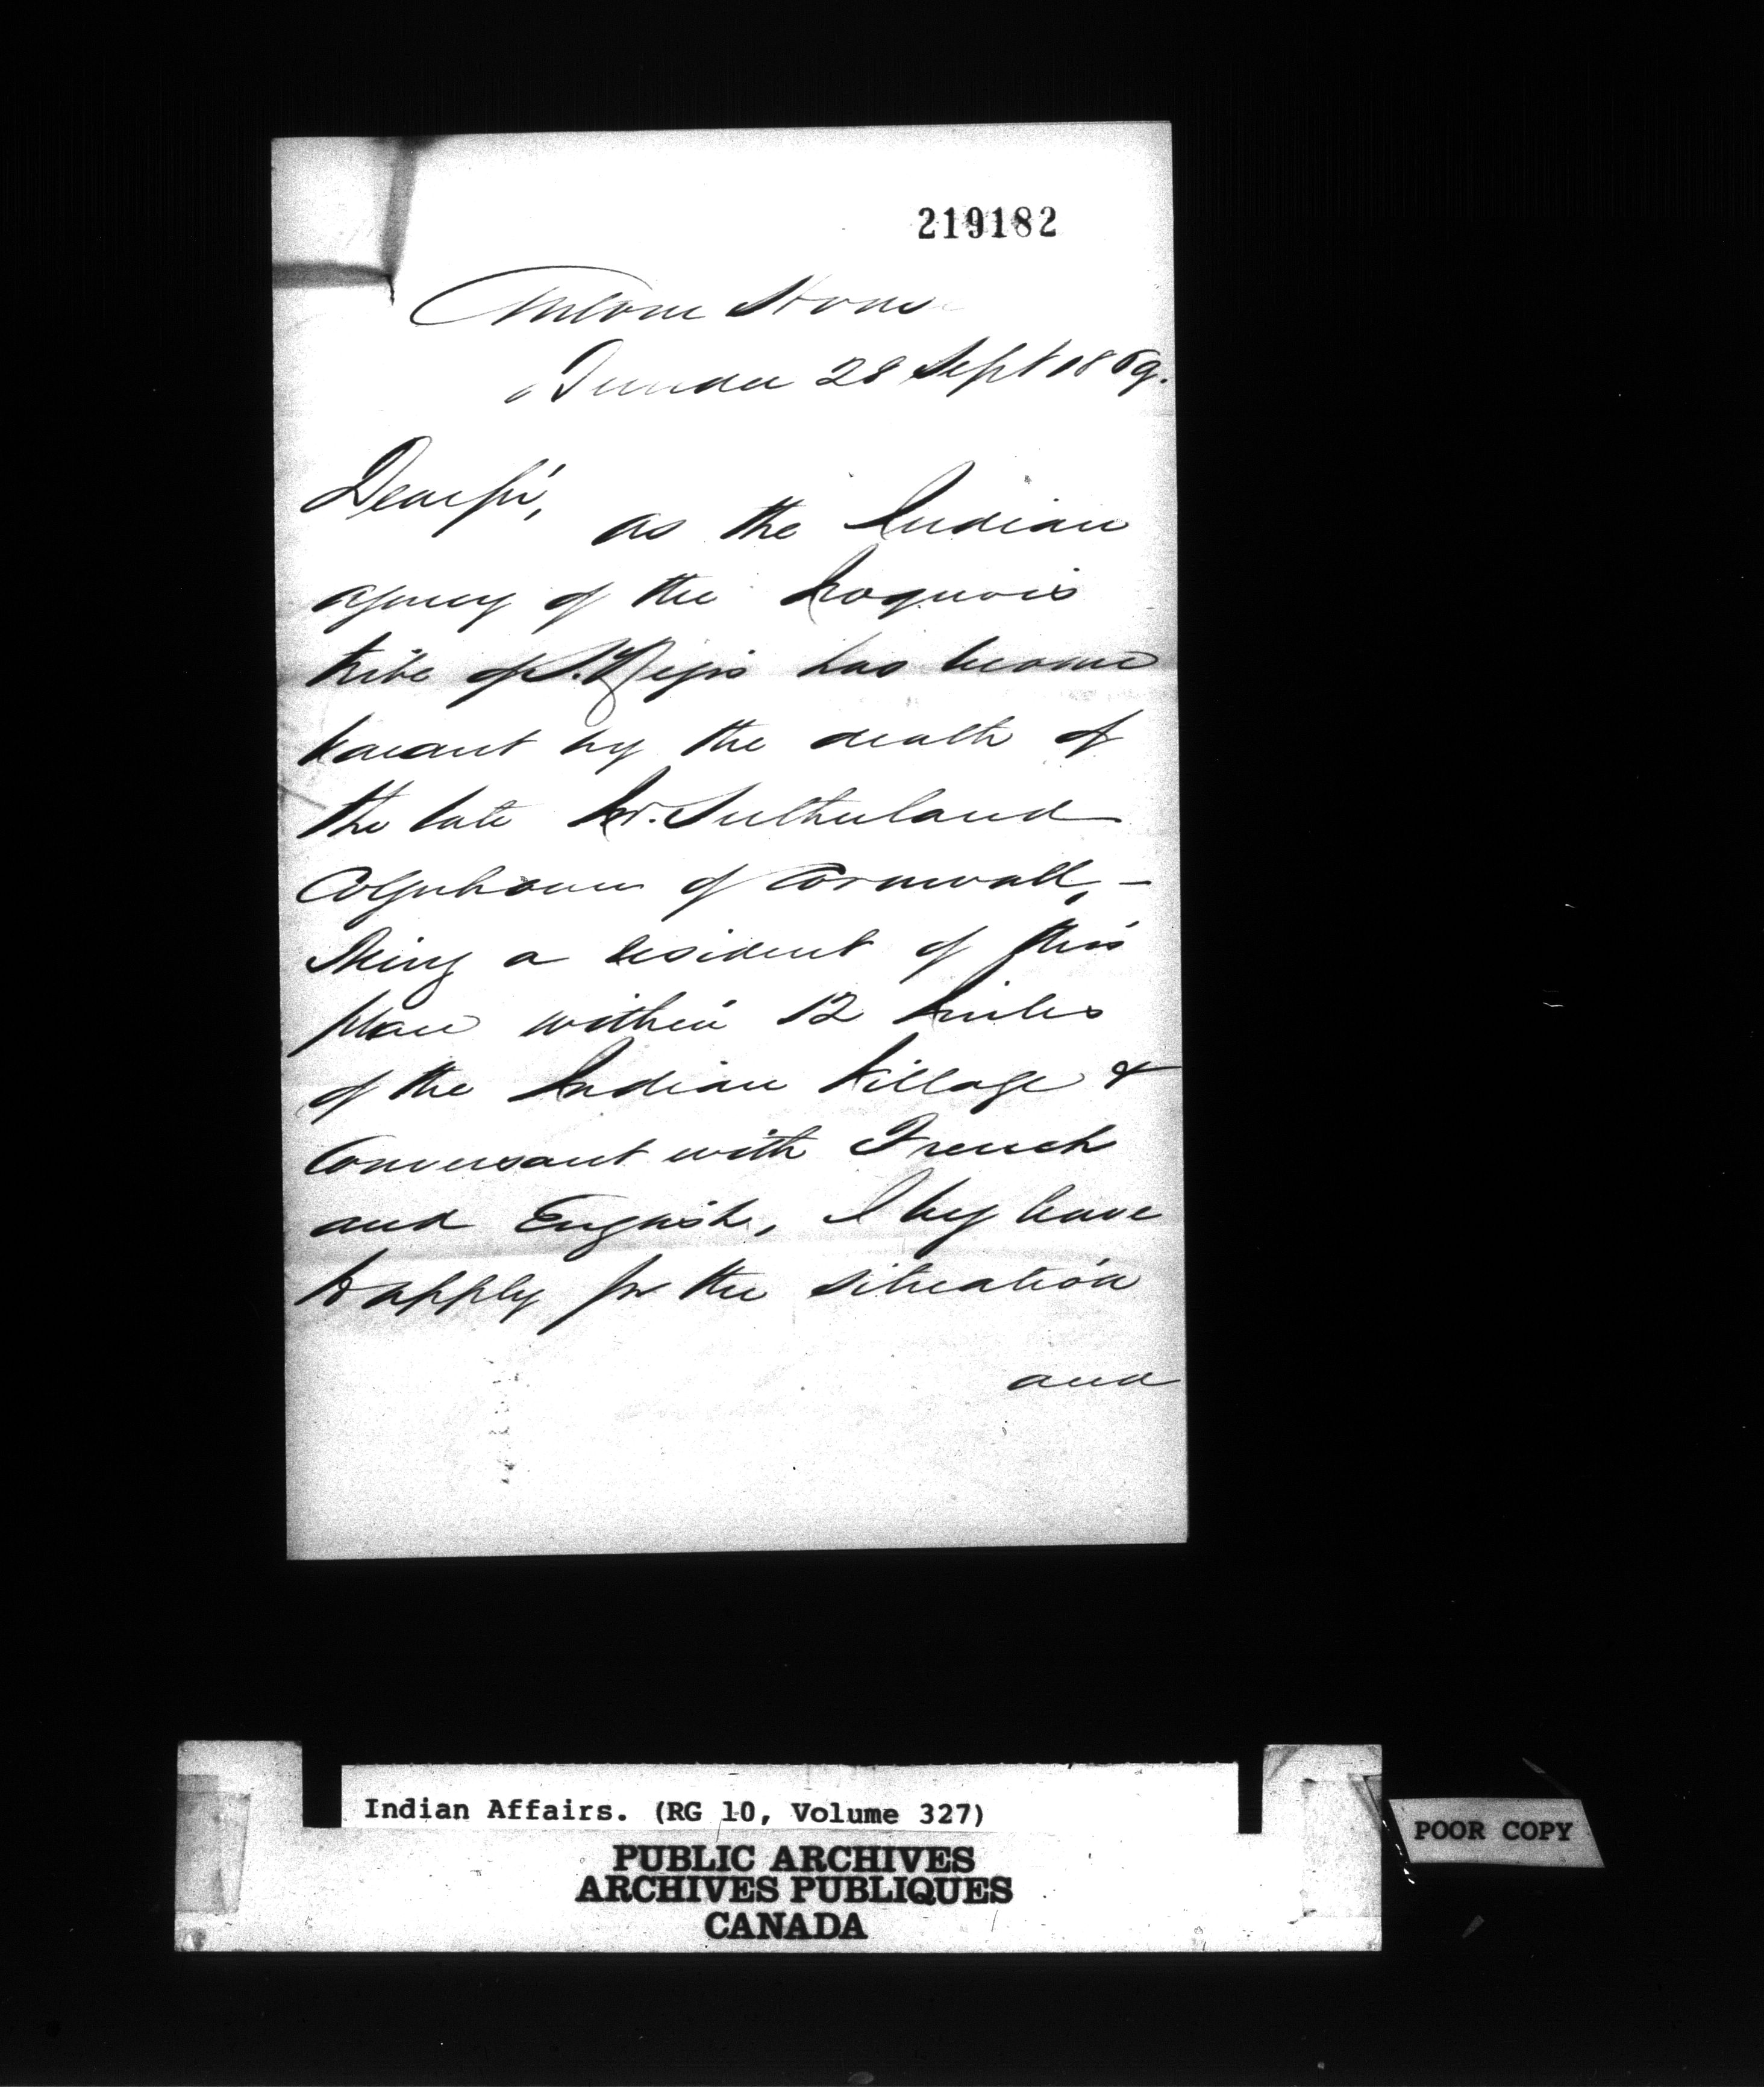 219182
Dundee 28 Sept 1869.
Dear Sir,
as the Indian
agency of the Iroquois
tribe of St. Regis has become
vacant by the death of
the late Mr. Sutherland
Colquhoun of Cornwall, –
being a resident of this
place within 12 miles
of the Indian Village &
conversant with French
and English, I beg leave
to apply for the situation
and
Indian Affairs. (RG 10, Volume 327)
PUBLIC ARCHIVES
ARCHIVES PUBLIQUES
CANADA
POOR COPY